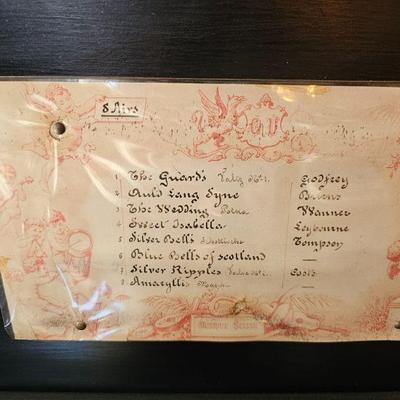 8 Airs
1 The Guards Valse No 1. Godfrey
2 Auld Lang Syne
3 The Wedding Polka Wanner
4 Sweet Isabella Leybourne
5 Silver Bells Schottische Tompson
6 Blue Bells of scotland —
7 Silver Ripples Valse No 2. Coote
8 Amaryllis —